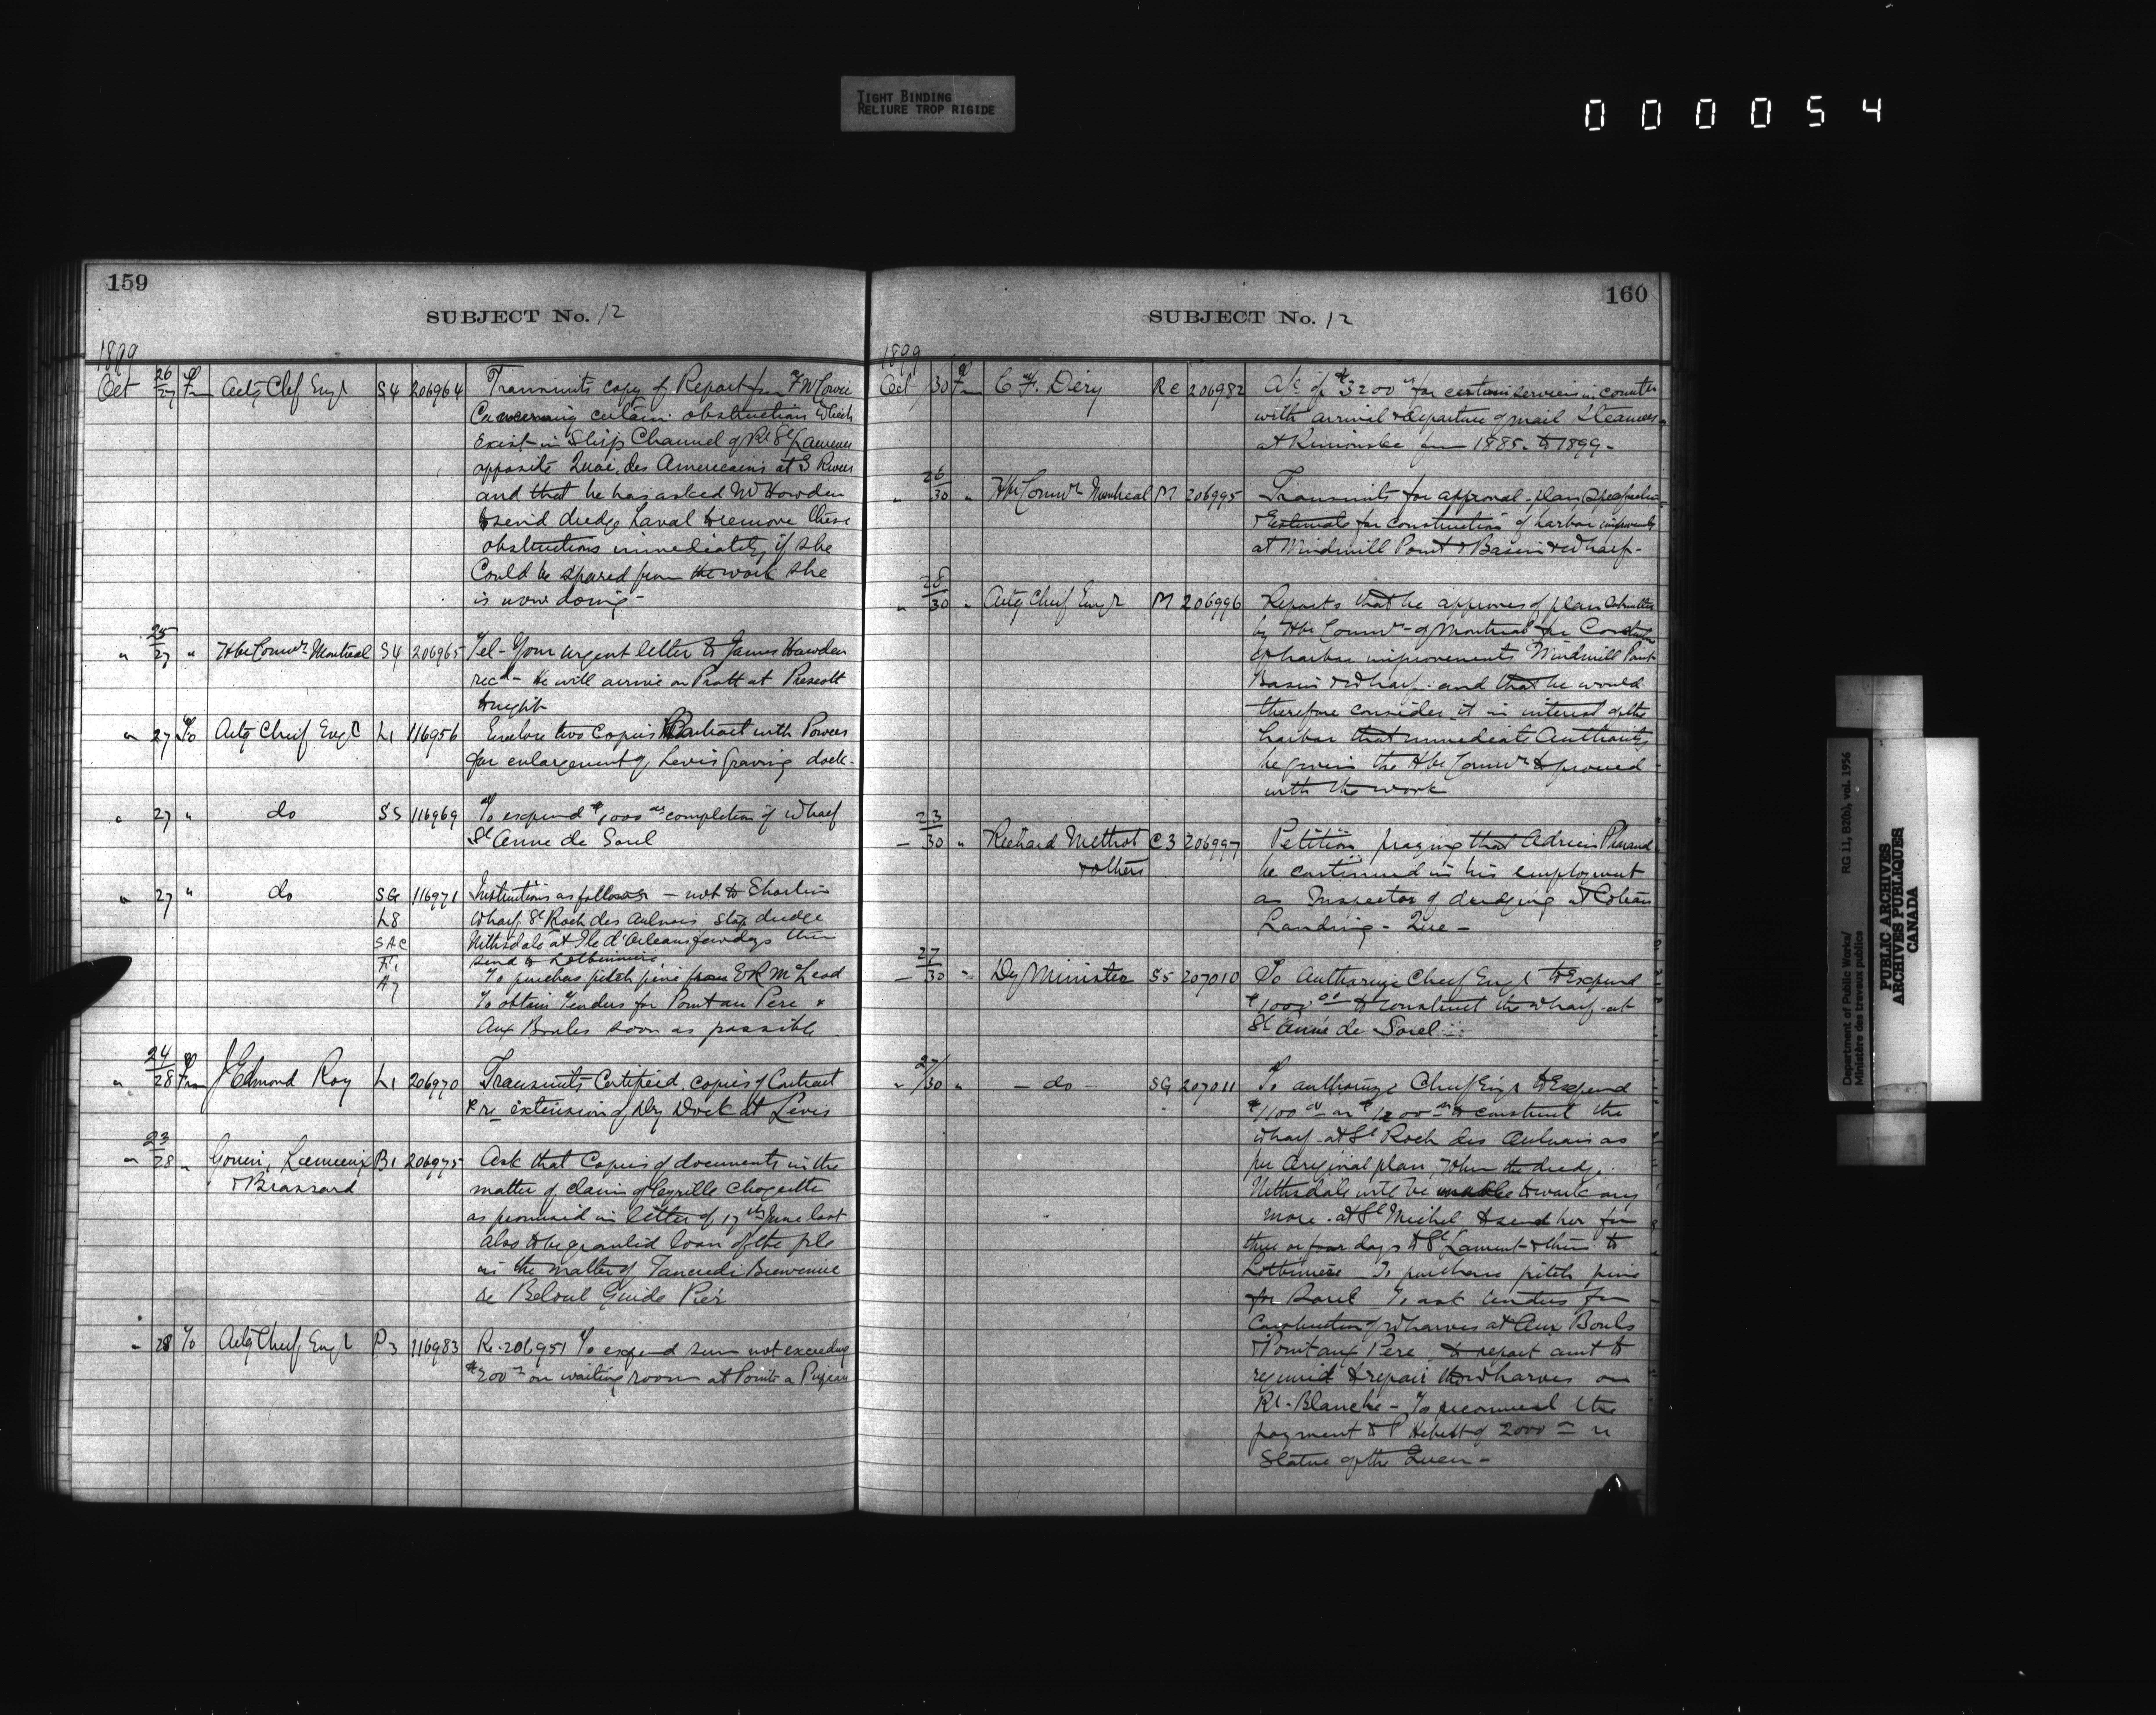 TIGHT BINDING
RELIURE TROP RIGIDE
000054
159
SUBJECT No. 12
1899
Oct 26/27 Fm Actg Chf Engr S4 206964 Transmits copy of Report from F W Cowie
Concerning certain obstruction which
exist in Ship Channel of Rr St Lawrence
opposite Quai des Americains at 3 Rivers
and that he has asked Mr Howden
to send dredge Laval to remove these
obstructions immediately if she
Could be spared from the work she
is now doing -
" 25/27 " Hbr Comrs Montreal S4 206965 Tel - Your urgent letter to James Howden
recd - he will arrive on Pratt at Prescott
tonight
" 27 To Actg Chief Engr L1 116956 Enclose two copies Contract with Powers
for enlargement of Levis Graving dock -
" 27 " do S5 116969 To expend $1000 00 completion of wharf
St Anne de Sorel
" 27 " do SG 116971 Instructions as follows - not to
L8 wharf St Roch des Aulnais, stop dredge
SAC Nithsdale at Ile d'Orleans few days then
send to Lotbiniere
A7 To purchas pitch pine from E R McLeod
To obtain Tenders for Point au Pere &
Aux Boules soon as possible
" 24/28 Fm J Edmond Roy L1 206970 Transmits Certified copies of Contract
re extension of Dry Dock at Levis
" 23/28 " Gouin, Lemieux B1 206975 Ask that Copies of documents in the
& Brassard matter of claim of Cyrille Choquette
as promised in letter of 17th June last
also to be granted loan of the ple
in the matter of Tancredi Bienvenue
re Beloeil Guide Pier
" 28 To Actg Chief Engr P3 116983 Re. 206951 To expend sum not exceeding
$200 00 on waiting room at Pointe a Pizeau
160
SUBJECT No. 12
1899
Oct 30 Fm C F. Dery RC 206982 A/c of $3200 00 for certain services in connctn
with arrival & departure of mail Steamers
at Rimouski from 1885 to 1899 -
" 26/30 " Hbr Comrs Montreal M 206995 Transmits for approval - plan Specification
& Estimate for construction of harbor improvemts
at Windmill Point & Basin & Wharf -
" 28/30 " Actg Chief Engr M 206996 Reports that he approves of plan submitted
by Hbr Comrs - of Montreal for Construction
of harbor improvements Windmill Point
Basin & Wharf. and that he would
therefore consider it in interest of the
harbor that immediate Authority
be given the Hbr Comrs to proceed
with the work
- 23/30 " Richard Methot C3 206997 Petition praying that Adrien
& others be continued in his employment
as Inspector of dredging at Coteau
Landing - Que -
- 27/30 " Dy Minister S5 207010 To Authorize Chief Engr to Expend
$1000 00 to construct the wharf at
St Anne de Sorel
" 27/30 " - do - SG 207011 To authorize Chief Engr to Expend
$1100 00 or $1200 00 to construct the
wharf at St Roch des Aulnais as
per Original plan, When the dredge
Nithsdale will be unable to work any
more at St Michel to send her for
three or four days to St Laurent & then to
Lotbiniere - To purchase pitch pine
for Sorel To ask tenders for
Construction of Wharves at Aux Bouls
& Point aux Pere to report amt to
required to repair the wharves on
Rr - Blanche - To recommend the
payment to P Hebert of 2000 00 re
Statue of the Queen -
Department of Public Works/ RG 11, B2(b), vol. 1956
Ministère des travaux publics
PUBLIC ARCHIVES
ARCHIVES PUBLIQUES
CANADA